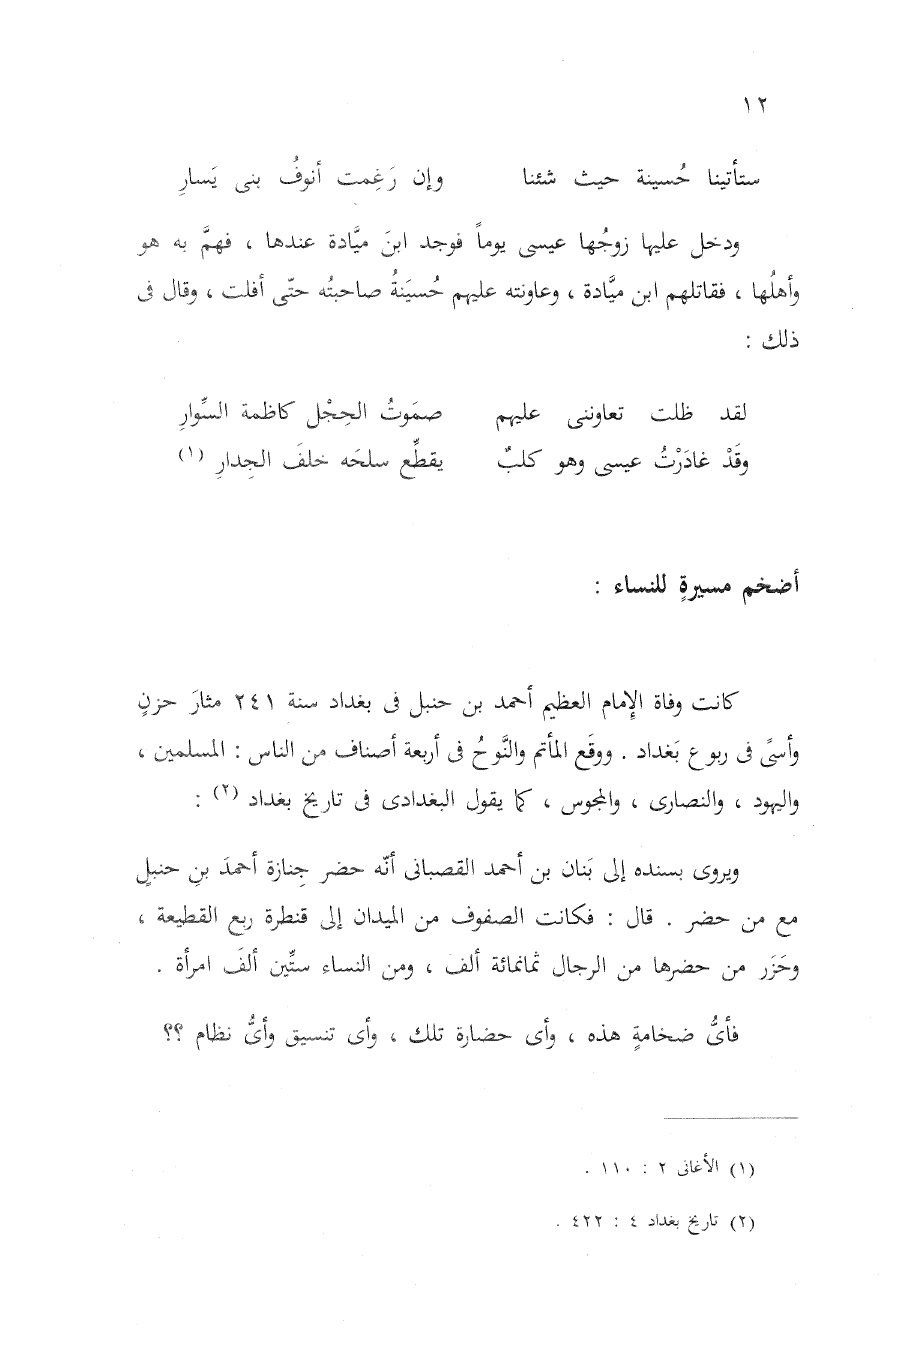 ١٢
ستأتينا حُسينة حيث شئنا وإن رَغِمت أنوفُ بنى يَسارِ
ودخل عليها زوجُها عيسى يوماً فوجد ابنَ ميَّادة عندها ، فهمَّ به هو
وأهلُها ، فقاتلهم ابن ميَّادة ، وعاونته عليهم حُسيَنةُ صاحبتُه حتّى أفلت ، وقال فى
ذلك :
لقد ظلت تعاوننى عليهم صمَوتُ الحِجْل كاظمة السِّوارِ
وقَدْ غادَرْتُ عيسى وهو كلبٌ يقطِّع سلحَه خلفَ الجِدارِ (١)
أضخم مسيرةٍ للنساء :
كانت وفاة الإمام العظيم أحمد بن حنبل فى بغداد سنة ٢٤١ مثارَ حزنٍ
وأسىً فى ربوع بَغداد . ووقَع المأتم والنَّوحُ فى أربعة أصناف من الناس : المسلمين ،
واليهود ، والنصارى ، والمجوس ، كما يقول البغدادى فى تاريخ بغداد (٢) :
ويروى بسنده إلى بَنان بن أحمد القصبانى أنّه حضر جِنازة أحمدَ بنِ حنبلٍ
مع من حضر . قال : فكانت الصفوف من الميدان إلى قنطرة ربع القطيعة ،
وحَزَر من حضرها من الرجال ثمانمائة ألف ، ومن النساء ستِّين ألفَ امرأة .
فأىُّ ضخامةٍ هذه ، وأى حضارة تلك ، وأى تنسيق وأىُّ نظام ؟؟
(١) الأغانى ٢ : ١١٠ .
(٢) تاريخ بغداد ٤ : ٤٢٢ .